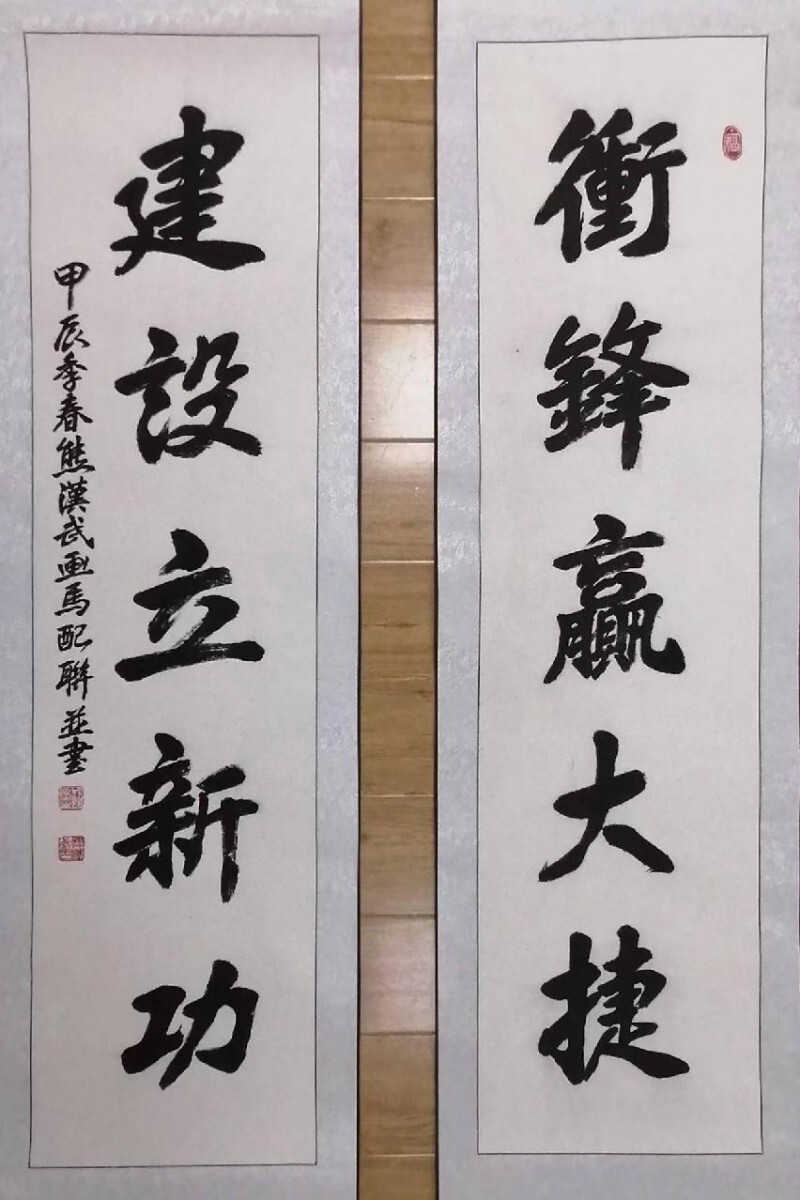 衝鋒贏大捷
建設立新功
甲辰季春熊漢武画馬配聯並書